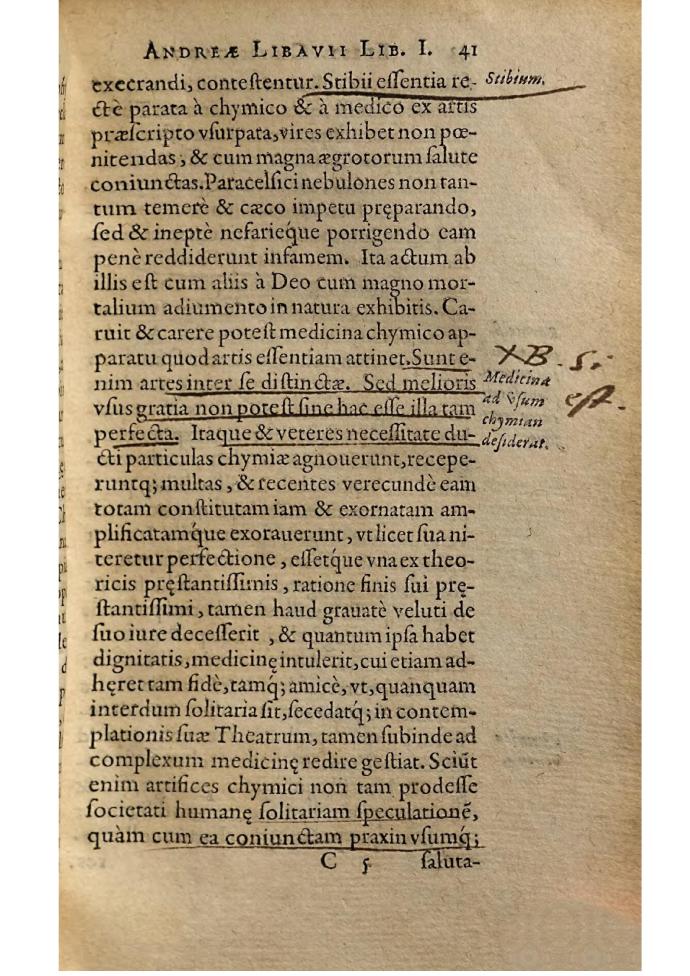 ANDREÆ LIBAVII LIB. I. 41
execrandi, conteſtentur. Stibii eſſentia re- Stibium.
ctè parata à chymico & à medico ex artis
præſcripto vſurpata, vires exhibet non pœ-
nitendas, & cum magna ægrotorum ſalute
coniunctas. Paracelſici nebulones non tan-
tum temerè & cæco impetu pręparando,
ſed & ineptè nefarieq́ue porrigendo eam
penè reddiderunt infamem. Ita actum ab
illis eſt cum aliis à Deo cum magno mor-
talium adiumento in natura exhibitis. Ca-
ruit & carere poteſt medicina chymico ap-
paratu quod artis eſſentiam attinet. Sunt e-
nim artes inter ſe diſtinctæ. Sed melioris
vſus gratia non poteſt ſine hac eſſe illa tam
perfecta. Itaque & veteres neceſſitate du-
cti particulas chymiæ agnouerunt, recepe-
runtq; multas, & recentes verecundè eam
totam conſtitutam iam & exornatam am-
plificatamq́ue exorauerunt, vt licet ſua ni-
teretur perfectione, eſſetq́ue vna ex theo-
ricis pręſtantiſſimis, ratione finis ſui prę-
ſtantiſſimi, tamen haud grauatè veluti de
ſuo iure deceſſerit, & quantum ipſa habet
dignitatis, medicinę intulerit, cui etiam ad-
hęret tam fidè, tamq́; amicè, vt, quanquam
interdum ſolitaria ſit, ſecedatq́; in contem-
plationis ſuæ Theatrum, tamen ſubinde ad
complexum medicinę redire geſtiat. Sciūt
enim artifices chymici non tam prodeſſe
ſocietati humanę ſolitariam ſpeculationē,
quàm cum ea coniunctam praxin vſumq́;
C 5 ſaluta-
Medicina
ad vſum
chymian
deſiderat.